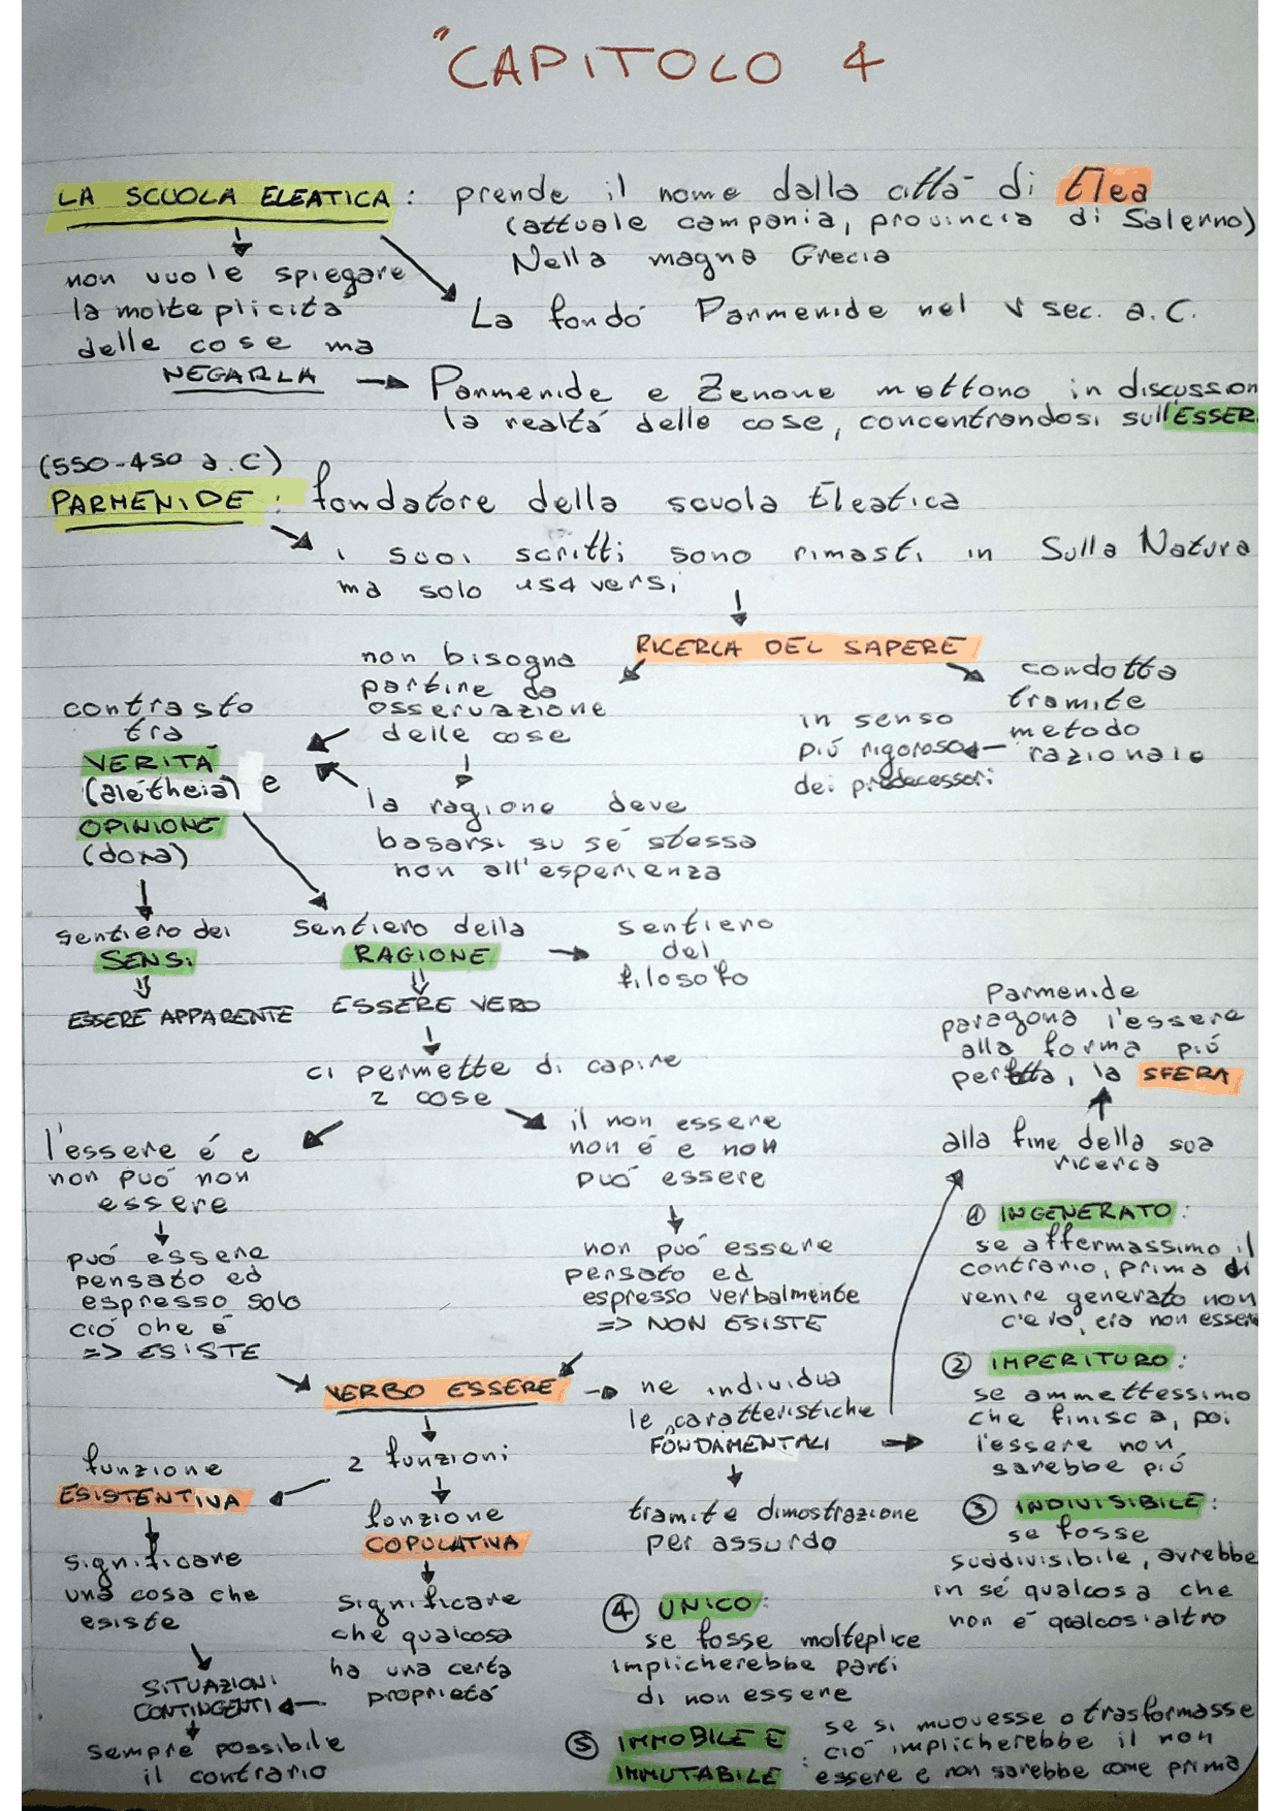 "CAPITOLO 4
LA SCUOLA ELEATICA: prende il nome dalla città di Elea
(attuale campania, provincia di Salerno)
Nella magna Grecia
non vuole spiegare
la molteplicità
delle cose ma
NEGARLA
La fondò Parmenide nel V sec. a.C.
Parmenide e Zenone mettono in discussion
la realtà delle cose, concentrandosi sull'ESSER
(550-450 a.C)
PARMENIDE: fondatore della scuola Eleatica
i suoi scritti sono rimasti in Sulla Natura
ma solo 154 versi
RICERCA DEL SAPERE
non bisogna
partire da
osservazione
delle cose
condotta
tramite
metodo
razionale
in senso
più rigoroso
dei predecessori
la ragione deve
basarsi su sé stessa
non all'esperienza
contrasto
tra
VERITÀ
(alétheia) e
OPINIONE
(doxa)
sentiero dei
SENSI
ESSERE APPARENTE
sentiero della
RAGIONE
ESSERE VERO
sentiero
del
filosofo
ci permette di capire
2 cose
l'essere é e
non può non
essere
può essere
pensato ed
espresso solo
ciò che é
=> ESISTE
il non essere
non é e non
può essere
non può essere
pensato ed
espresso verbalmente
=> NON ESISTE
Parmenide
paragona l'essere
alla forma più
perfetta, la SFERA
alla fine della sua
ricerca
VERBO ESSERE
ne individua
le caratteristiche
FONDAMENTALI
tramite dimostrazione
per assurdo
2 funzioni
funzione
ESISTENTIVA
significare
una cosa che
esiste
funzione
COPULATIVA
significare
che qualcosa
ha una certa
proprietà
SITUAZIONI
CONTINGENTI
sempre possibile
il contrario
① INGENERATO:
se affermassimo il
contrario, prima di
venire generato non
c'era, era non essere
② IMPERITURO:
se ammettessimo
che finisca, poi
l'essere non
sarebbe più
③ INDIVISIBILE:
se fosse
suddivisibile, avrebbe
in sé qualcosa che
non é qualcos'altro
④ UNICO:
se fosse molteplice
implicherebbe parti
di non essere
⑤ IMMOBILE E
IMMUTABILE:
se si muovesse o trasformasse
ciò implicherebbe il non
essere e non sarebbe come prima